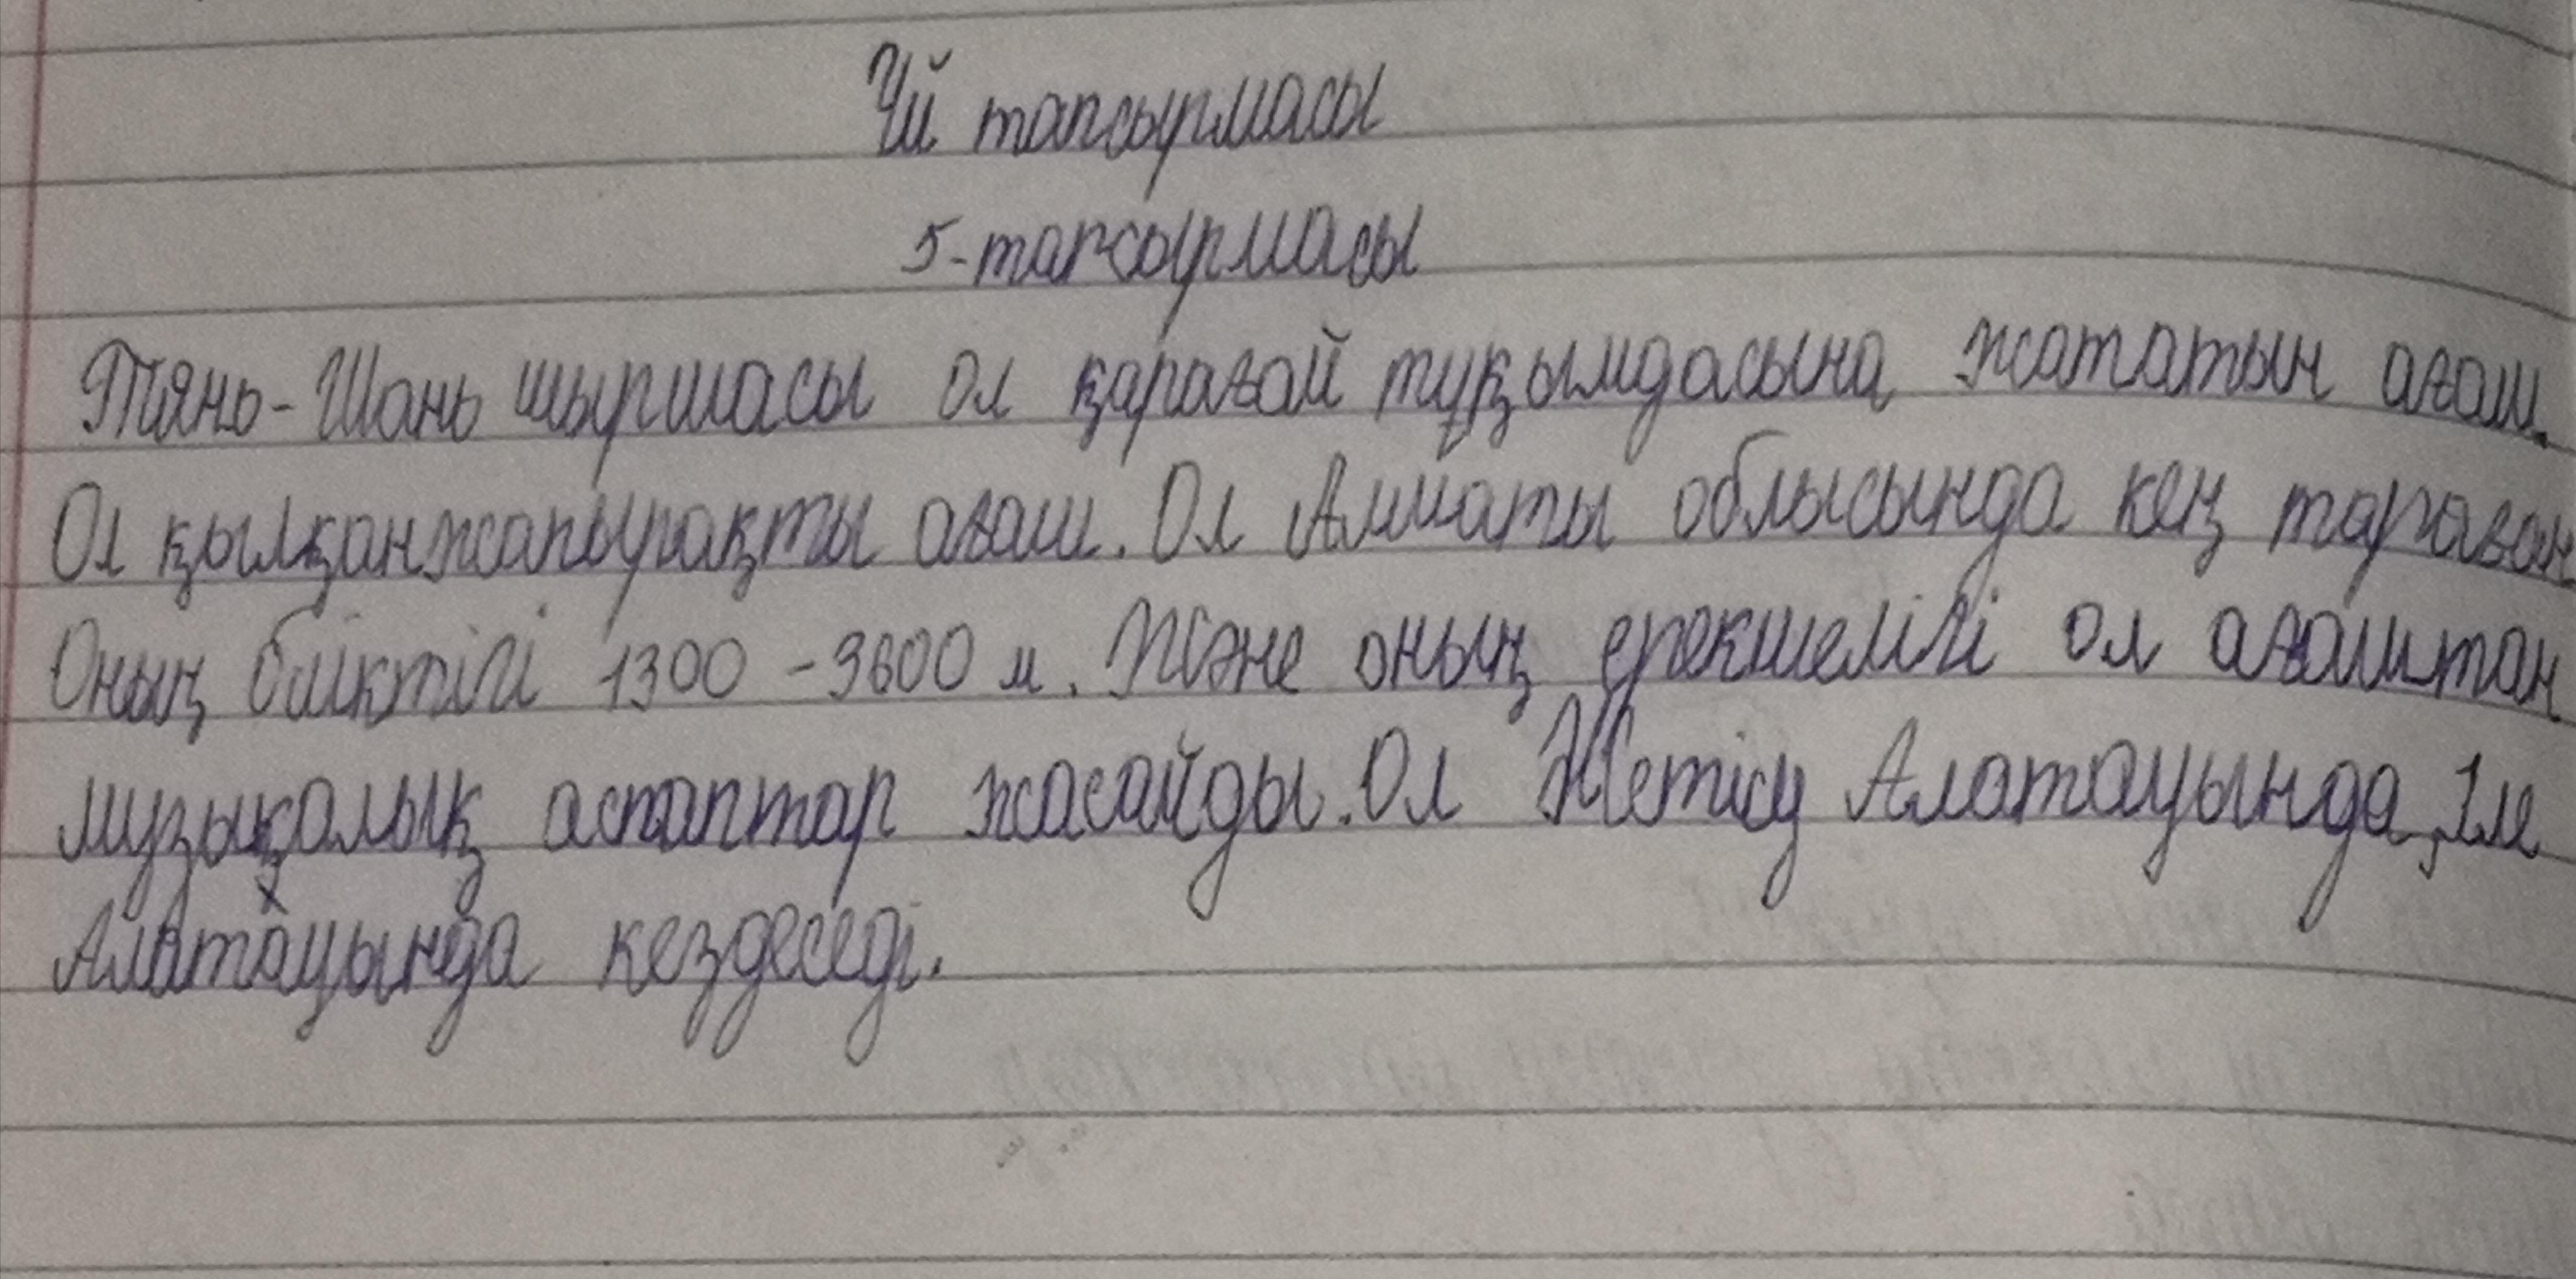 Үй тапсырмасы
5-тапсырмасы
Тянь-Шань шыршасы ол қарағай тұқымдасына жататын ағаш.
Ол қылқанжапырақты ағаш. Ол Алматы облысында кең тараған
Оның биіктігі 1300 - 3600 м. Және оның ерекшелігі ол ағаштан
музықалық аспаптар жасайды. Ол Жетісу Алатауында, Іле
Алатауында кездеседі.